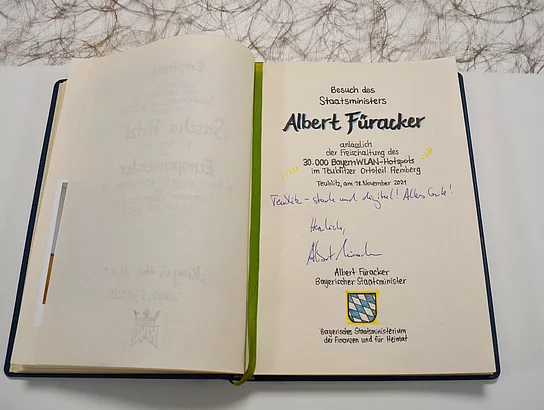 Besuch des
Staatsministers
Albert Füracker
anlässlich
der Freischaltung des
30.000 BayernWLAN-Hotspots
im Teublitzer Ortsteil
Teublitz, am 18. November 2021
Teublitz – stark und digital! Alles Gute!
Herzlich,
Albert Füracker
Albert Füracker
Bayerischer Staatsminister
Bayerisches Staatsministerium
der Finanzen und für Heimat